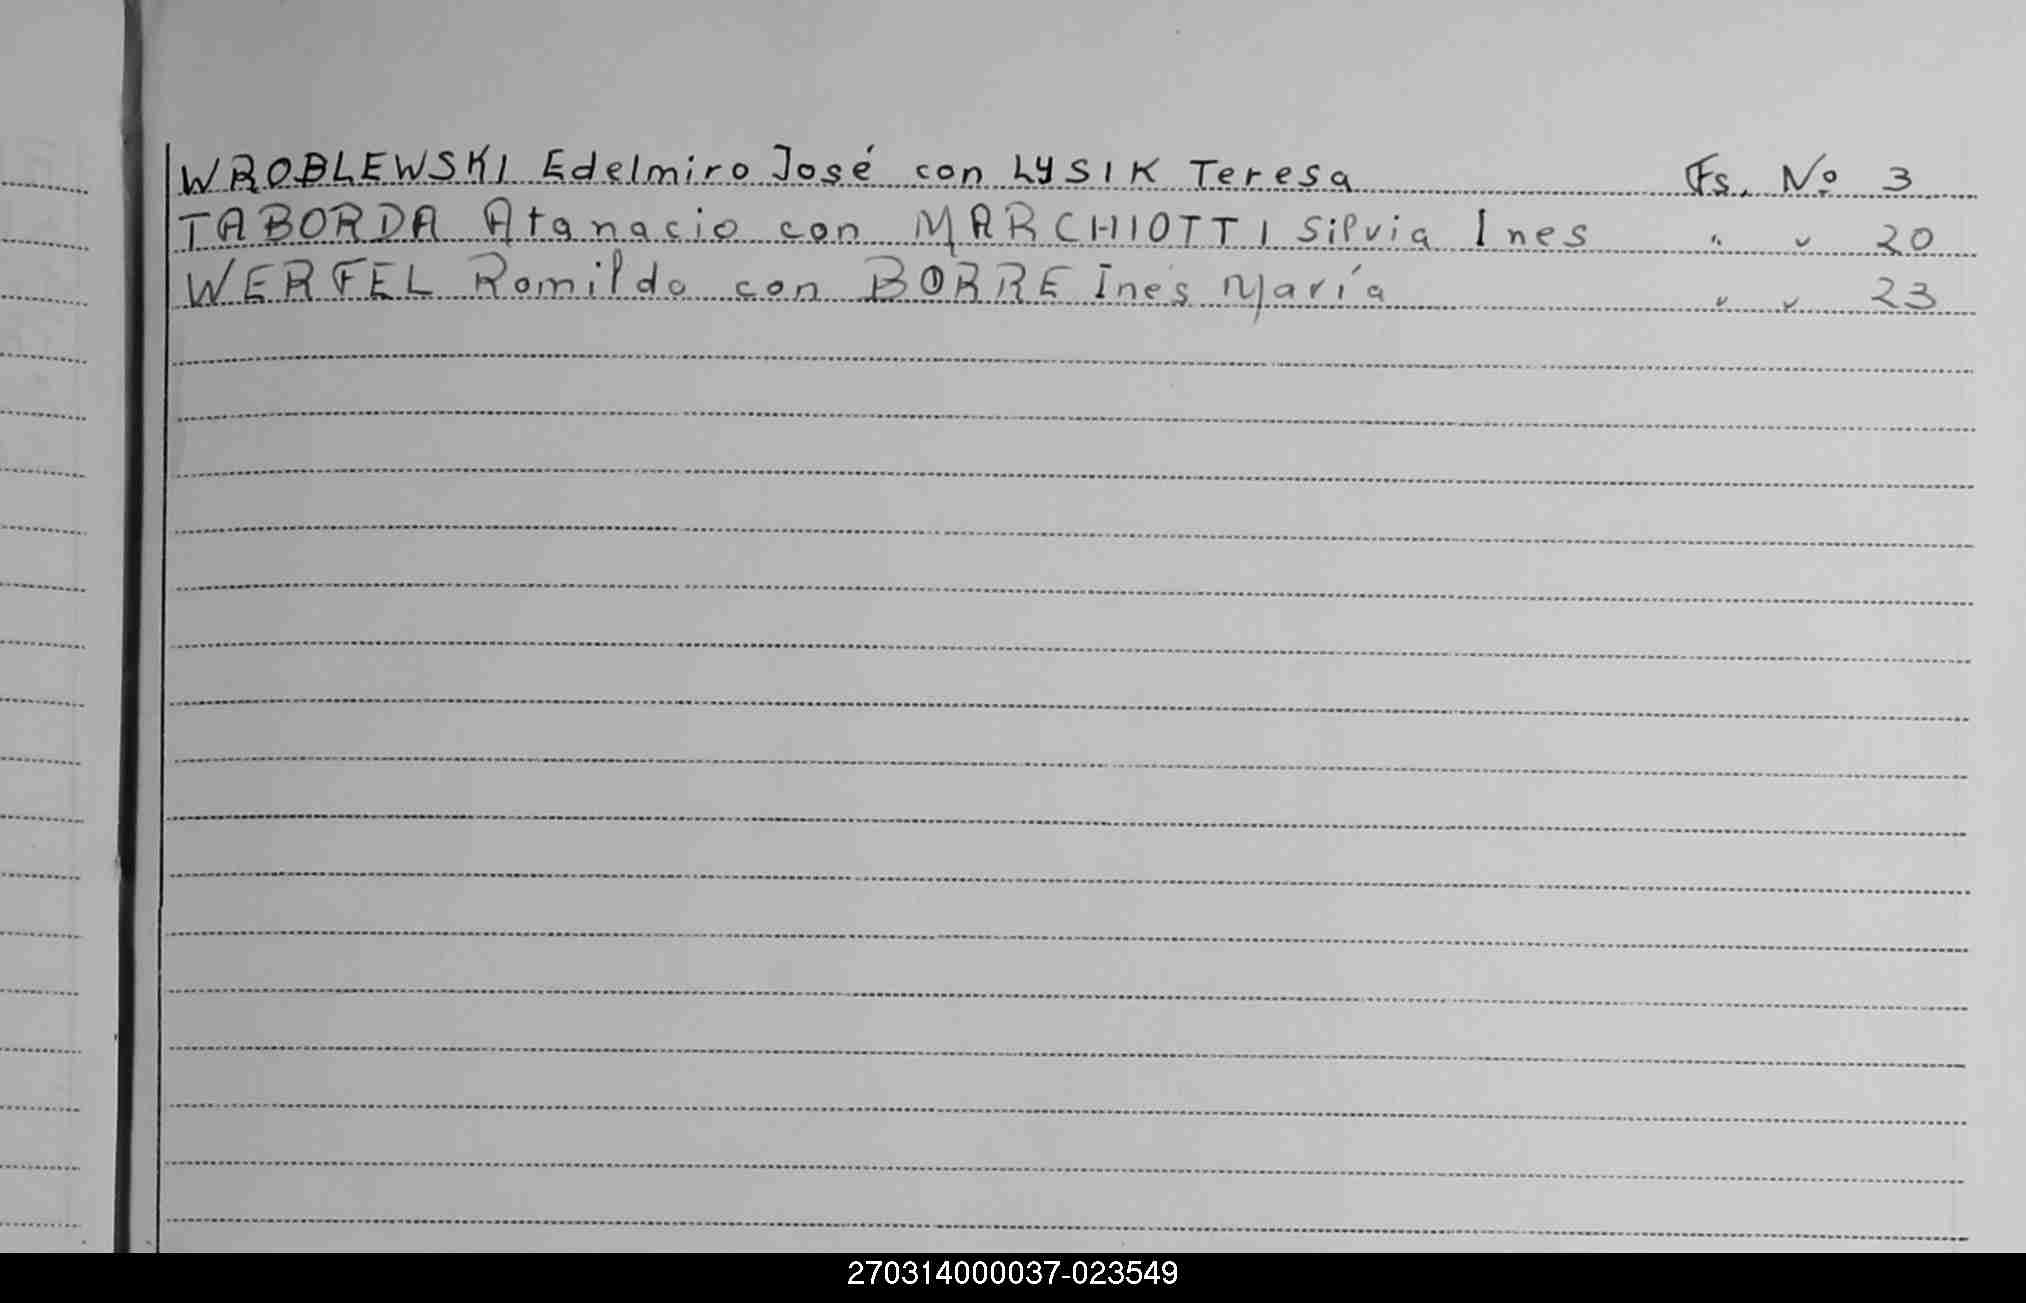 WROBLEWSKI Edelmiro José con LYSIK Teresa Fs. Nº 3
TABORDA Atanacio con MARCHIOTTI Silvia Ines " " 20
WERFEL Romildo con BORRE Inés María " " 23
270314000037-023549